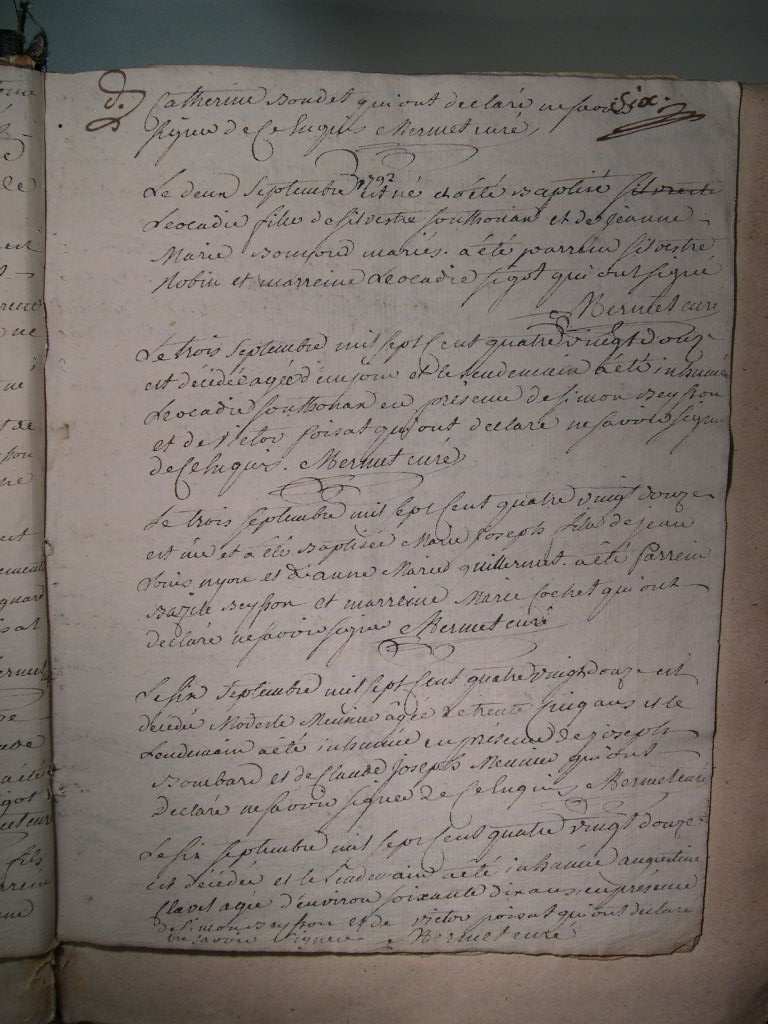 d. Catherine Boudet qui ont declaré ne savoir Six.
signer de ce enquis Mermet curé
Le deux Septembre 1792 est né et a été Baptisé
Leocadie fille de Silvestre Southonan et de jeanne
Marie Bonford mariés. a été parrein Silvestre
Robin et marreine Leocadie sigot qui ont signé
Mermet curé
Le trois Septembre mil sept cent quatre vingt douze
est décédée agée d'un jour et le lendemain a été inhumée
Leocadie Southonan en présence de simon Beysson
et de victor poisat qui ont declaré ne savoir signer
de ce enquis. Mermet curé
Le trois septembre mil sept cent quatre vingt douze
est née et a été Baptisée Marie Joseph fille de jean
Louis nyon et d'anne Marie quillermet. a été parrein
Bazile Beysson et marreine Marie cochet qui ont
declaré ne savoir signer Mermet curé
Le six Septembre mil sept cent quatre vingt douze est
décédée Modeste Meunier âgée de trente cinq ans et le
Lendemain a été inhumée en présence de joseph
Bombard et de Claude Joseph Meunier qui ont
declaré ne savoir signer de ce enquis Mermet curé
Le six septembre mil sept cent quatre vingt douze
est décédée et le lendemain a été inhumée augustine
Clavet agée d'environ soixante dix ans, en présence
de simon Beysson et de victor poisat qui ont declaré
ne savoir signer Mermet curé